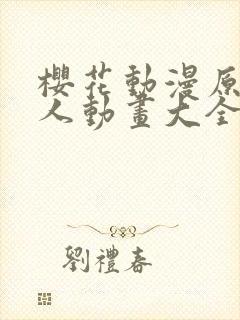 櫻花動漫原
人動畫大全
劉禮春